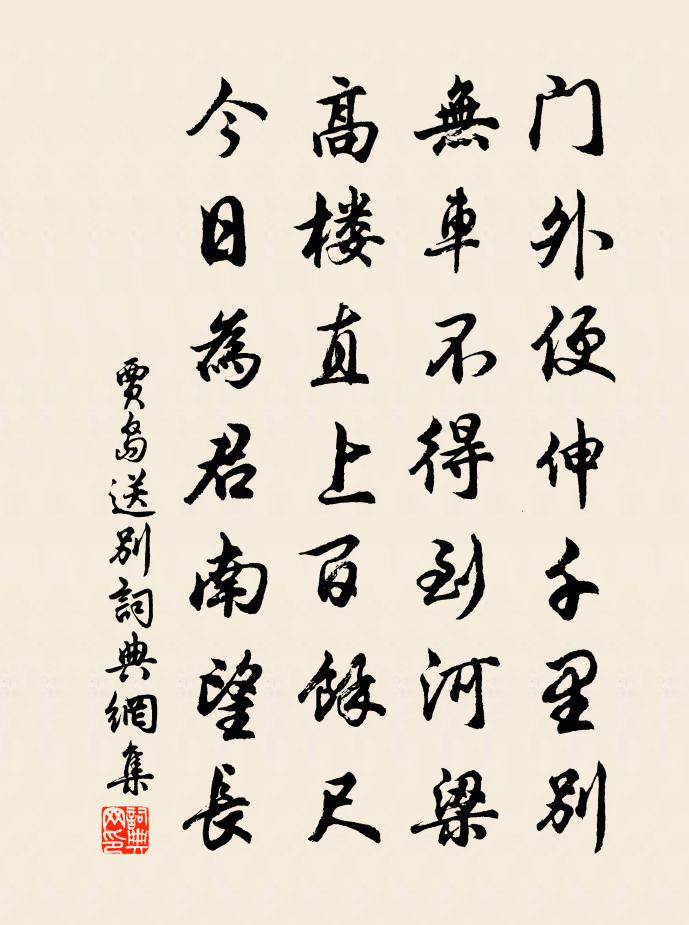 门外便伸千里别
無車不得到河梁
高楼直上百餘尺
今日為君南望長
賈島送别詞典網集
詞典网印